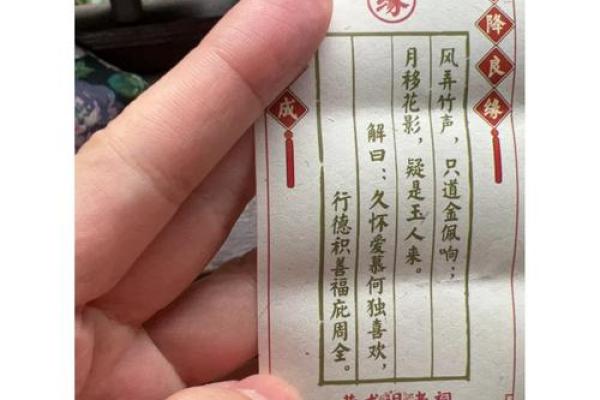 缘
降良缘
风弄竹声，只道金佩响；
月移花影，疑是玉人来。
解曰：久怀爱慕何独喜欢，
行德积善福庇周全。
成